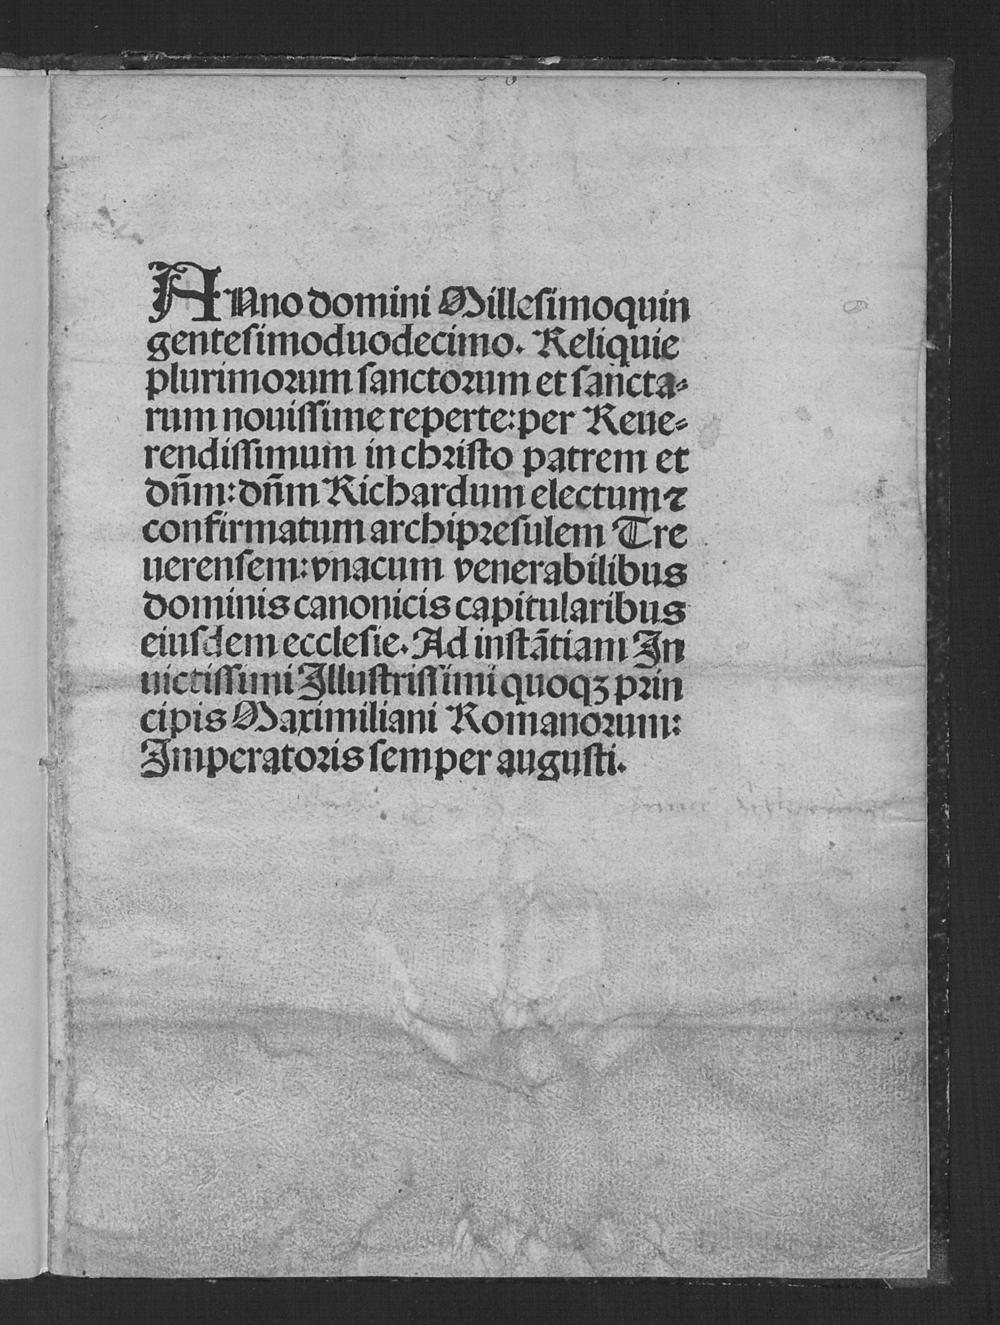 ANno domini Millesimoquin
gentesimoduodecimo. Reliquie
plurimorum sanctorum et sancta-
rum nouissime reperte: per Reue-
rendissimum in christo patrem et
dn̄m: dn̄m Richardum electum ⁊
confirmatum archipresulem Tre
uerensem: vnacum venerabilibus
dominis canonicis capitularibus
eiusdem ecclesie. Ad instātiam In
uictissimi Illustrissimi quoqꝫ prin
cipis Maximiliani Romanorum:
Imperatoris semper augusti.